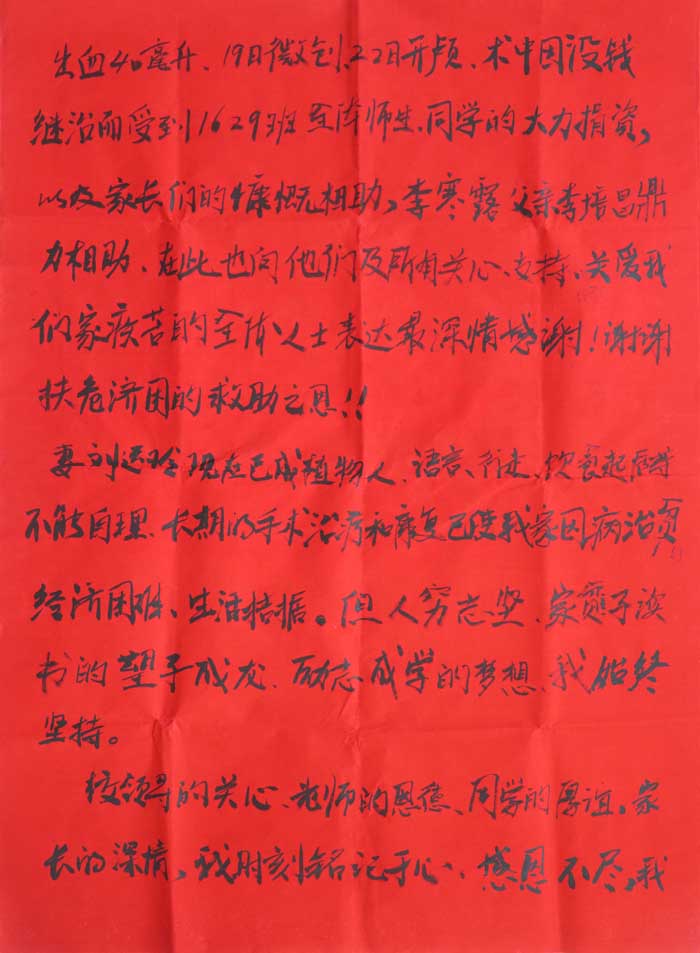 出血40毫升、19日微创、22日开颅、术中因没钱
继治而受到1629班全体师生、同学的大力捐资,
以及家长们的慷慨相助,李寒露父亲李培昌鼎
力相助、在此也向他们及所有关心、支持、关爱我
们家疾苦的全体人士表达最深情感谢!谢谢
扶危济困的救助之恩!!
妻刘运玲现在已成植物人、语言、行走、饮食起居
不能自理、长期的手术治疗和康复已使我家因病治贫
经济困难、生活拮据。但人穷志坚、家贫子读
书的望子成龙、励志成学的梦想、我始终
坚持。
校领导的关心、老师的恩德、同学的厚谊、家
长的深情,我时刻铭记于心、感恩不尽,我